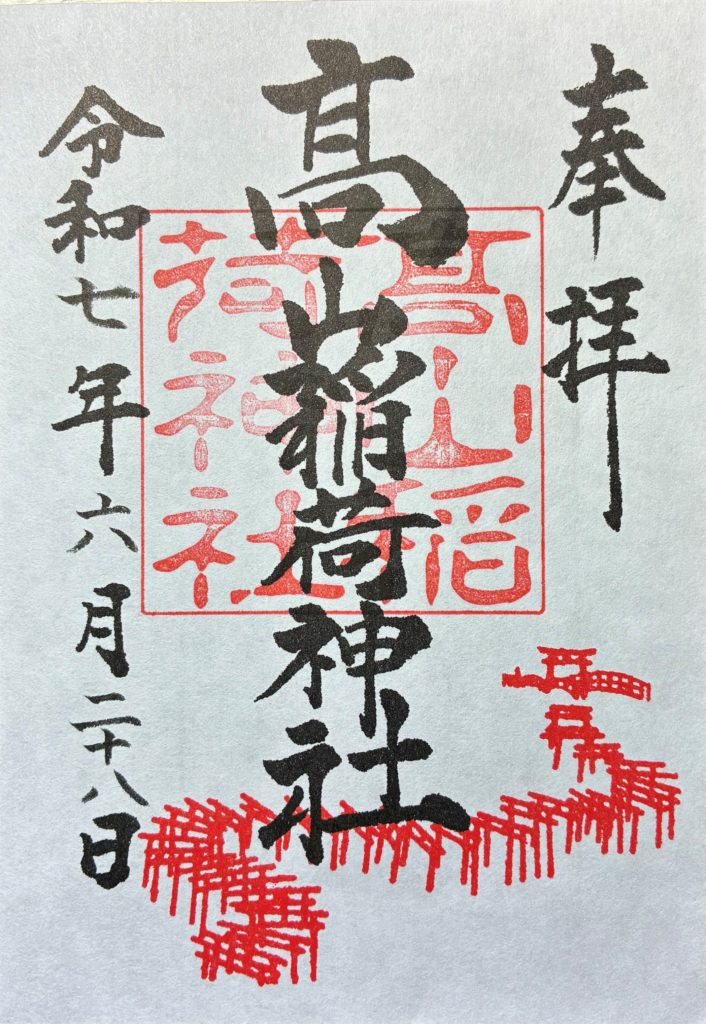 奉拝
髙山稲荷神社
髙山稲
荷神社
令和七年六月二十八日